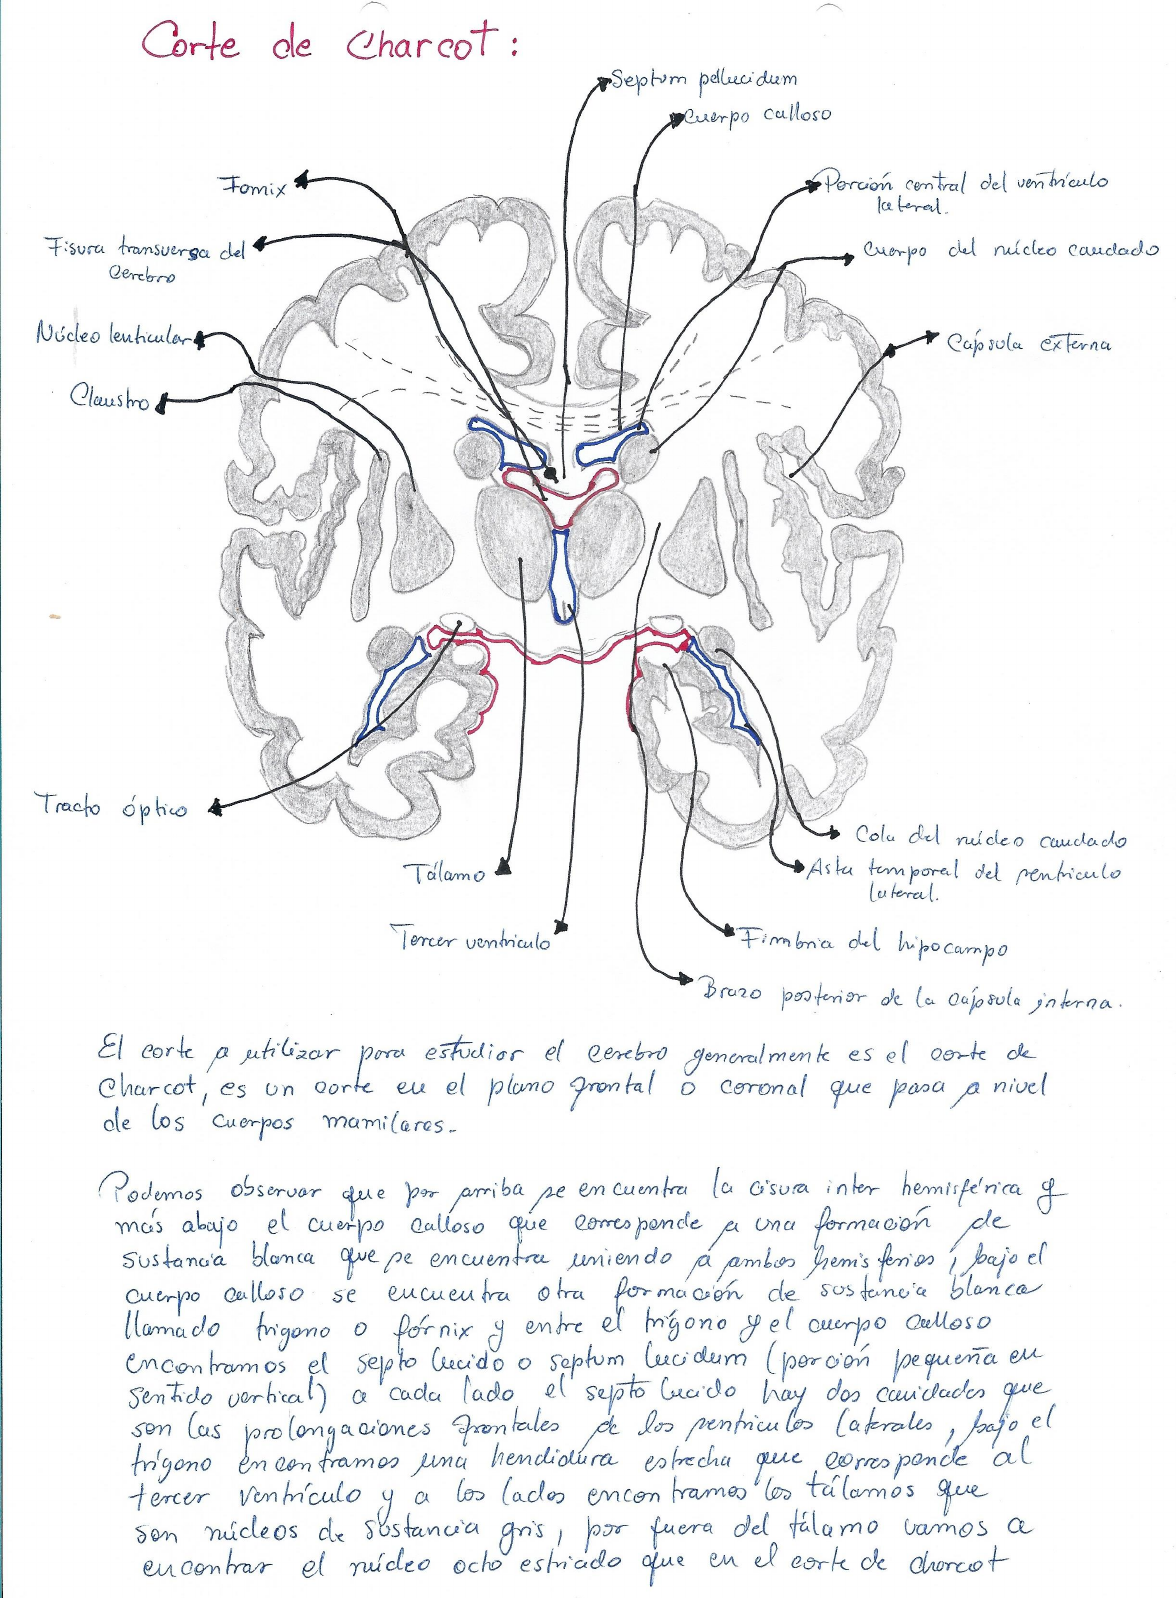 Corte de Charcot:
Septum pellucidum
Cuerpo calloso
Fornix
Porción central del ventrículo
lateral.
Fisura transversa del
Cerebro
Cuerpo del núcleo caudado
Núcleo lenticular
Cápsula externa
Claustro
Tracto óptico
Cola del núcleo caudado
Tálamo
Asta temporal del ventriculo
lateral.
Tercer ventriculo
Fimbria del hipocampo
Brazo posterior de la cápsula interna.
El corte a utilizar para estudiar el cerebro generalmente es el corte de
Charcot, es un corte en el plano frontal o coronal que pasa a nivel
de los cuerpos mamilares.
Podemos observar que por arriba se encuentra la cisura inter hemisférica y
más abajo el cuerpo calloso que corresponde a una formación de
sustancia blanca que se encuentra uniendo a ambos hemisferios, bajo el
cuerpo calloso se encuentra otra formación de sustancia blanca
llamado trigono o fórnix y entre el trígono y el cuerpo calloso
encontramos el septo lucido o septum lucidum (porción pequeña en
sentido vertical) a cada lado el septo lucido hay dos cavidades que
son las prolongaciones frontales de los ventriculos laterales, bajo el
trígono encontramos una hendidura estrecha que corresponde al
tercer ventrículo y a los lados encontramos los tálamos que
son núcleos de sustancia gris, por fuera del tálamo vamos a
encontrar el núcleo octo estriado que en el corte de charcot